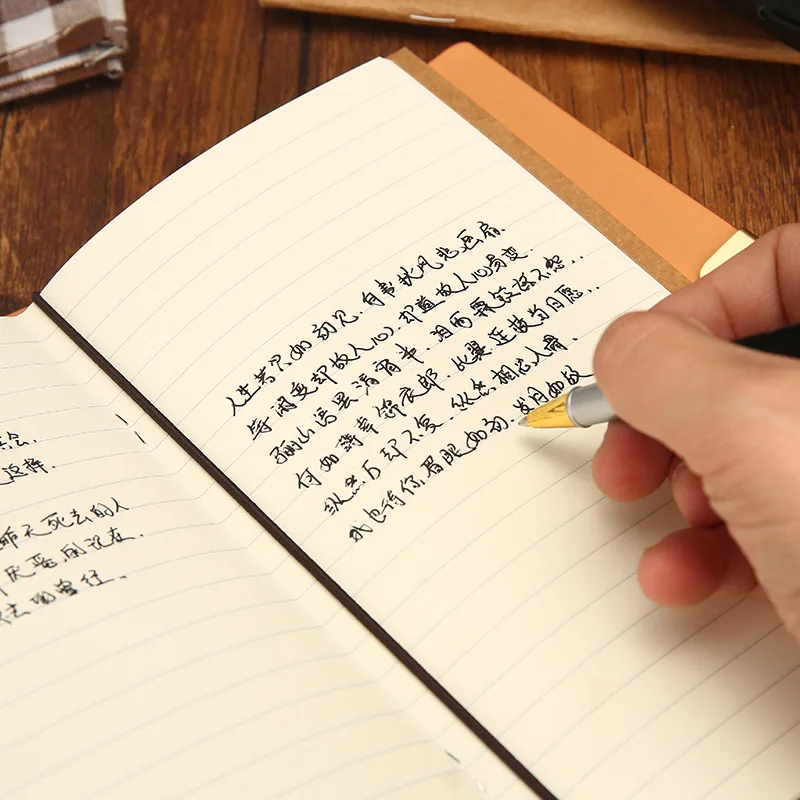 会.
这样.
昨天死去的人
厌恶的现在.
去的曾经.
人生若只如初见.何事秋风悲画扇.
等闲变却故人心,却道故人心易变.
骊山语罢清宵半.泪雨霖铃终不怨..
何如薄幸锦衣郎.比翼连枝当日愿..
纵然万却不复.纵然相思入骨.
我也待你眉眼如初.岁月如故